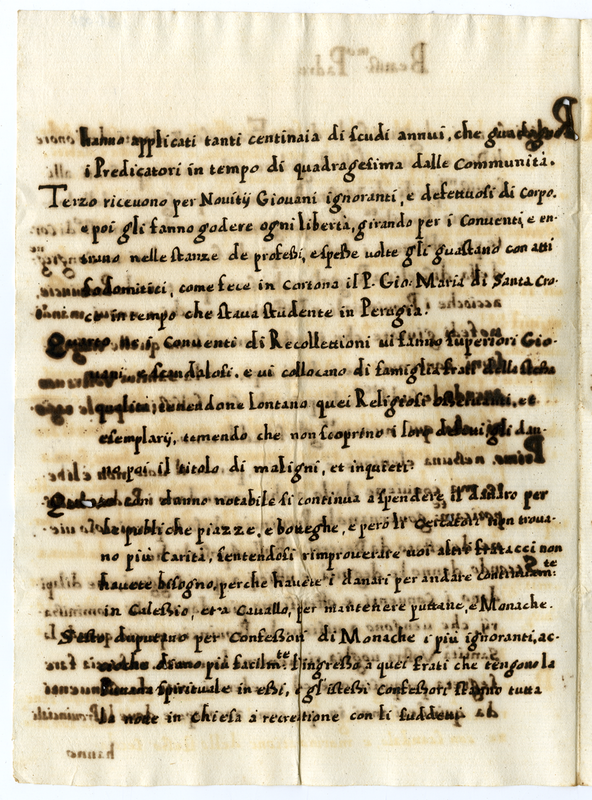 hanno applicati tanti centinaia di scudi annui, che guadagnano
i Predicatori in tempo di quadragesima dalle Communità.
Terzo ricevono per Novitij Giovani ignoranti, e defettuosi di corpo.
e poi gli fanno godere ogni libertà, girando per i Conventi, e en-
trano nelle stanze de professi, e spesse volte gli guastano con atti
sodomitici, come fece in Cortona il P. Gio: Maria di Santa Cro-
ce in tempo che stava studente in Perugia.
Quarto ne i Conventi di Recollettioni vi fanno superiori Gio-
vani, e scandalosi. e vi collocano di famiglia frati della stessa
qualità, tenendone lontano quei Religiosi et
esemplarij, temendo che non scoprino i loro
no poi il titolo di maligni, et inquieti.
con danno notabile si continua a spendere il per
le publiche piazze, e botteghe, e però li non trova-
no più carità, sentendosi rimproverare voi altri fratacci non
havete bisogno, perche havete i danari per andare continuam:te
in Calessio, et a Cavallo, per mantenere puttane, e Monache.
Sesto deputano per Confessori di Monache i più ignoranti, ac-
cioche diano più facilm:te l'ingresso a quei frati che tengono la
spirituale in essi, e gl'istessi confessori stanno tutta
la note in chiesa a recreatione con li suddetti
hanno